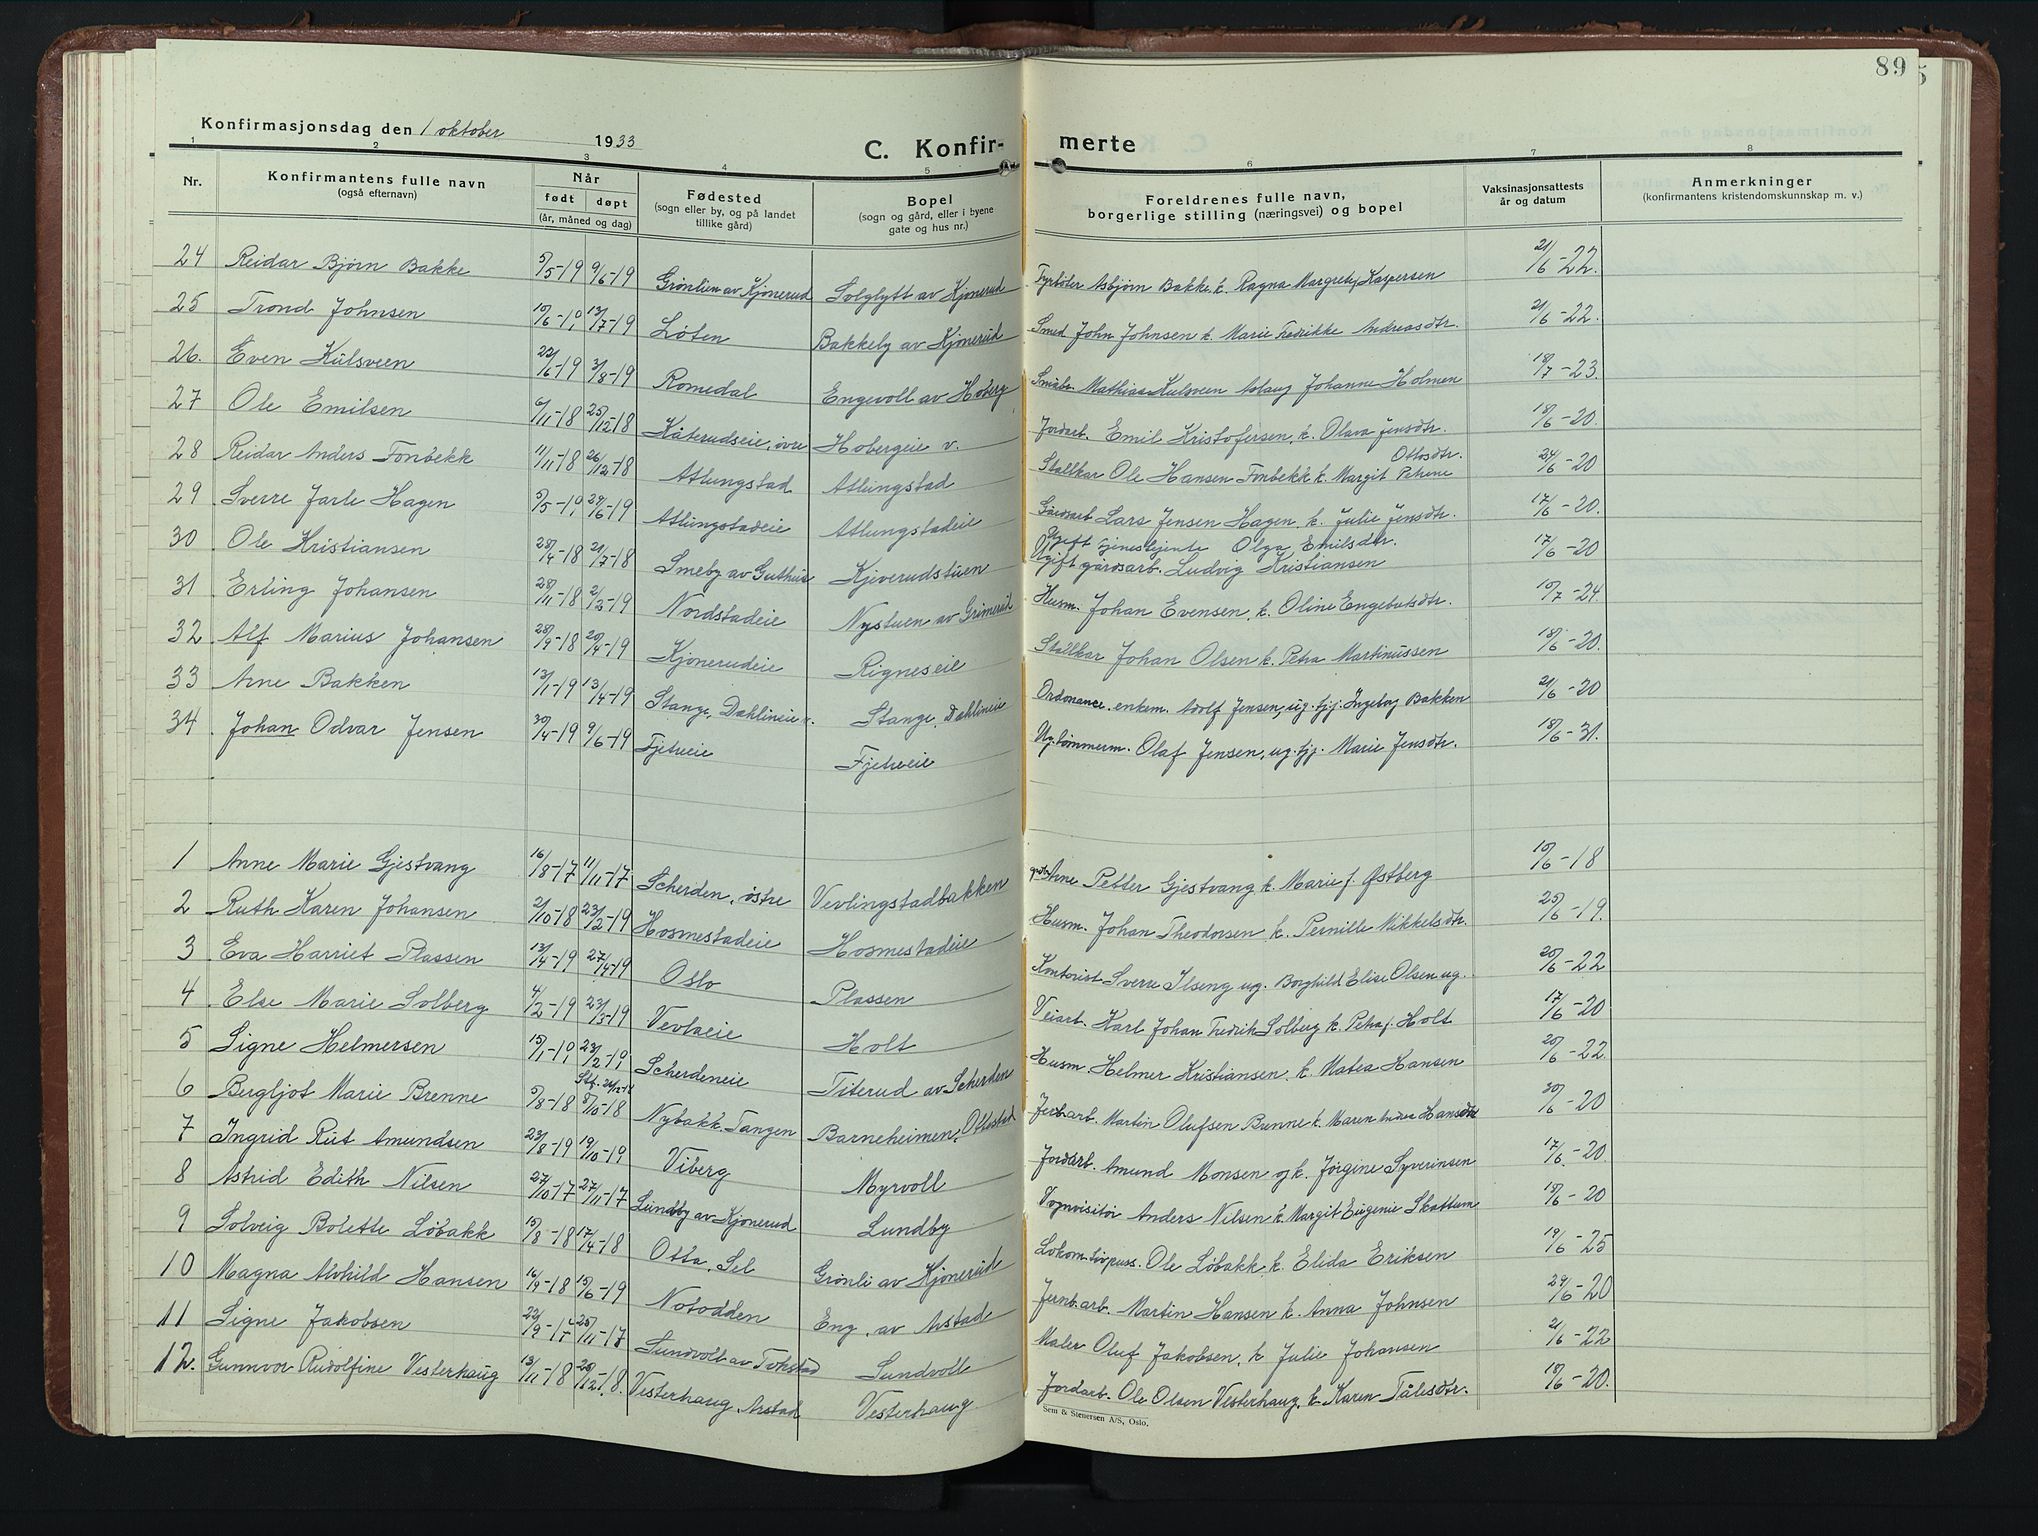 89
Konfirmasjonsdag den 1 oktober 1933
C. Konfir- merte
1 2 3 4 5 6 7 8
Nr. Konfirmantens fulle navn (også efternavn) Når født døpt (år, måned og dag) Fødested (sogn eller by, og på landet tillike gård) Bopel (sogn og gård, eller i byene gate og hus nr.) Foreldrenes fulle navn, borgerlige stilling (næringsvei) og bopel Vaksinasjonsattests år og datum Anmerkninger (konfirmantens kristendomskunnskap m. v.)
24 Reidar Bjørn Bakke 5/5-19 9/6-19 Grønlien av Kjonerud Solglytt av Kjonerud Fyrbøter Asbjørn Bakke k. Ragna Margrethe Kaspersen 21/6-22.
25 Trond Johnsen 10/6-19 13/7-19 Løten Bakkely av Kjonerud Smed John Johnsen k. Marie Fredrikke Andreasdtr. 21/6-22.
26. Even Kulsveen 22/6-19 3/8-19 Romedal Engevoll av Hoberg Småbr. Mathias Kulsveen Aslaug Johanne Holmen 18/7-23.
27 Ole Emilsen 6/11-18 25/12-18 Kåterudseie, øvre Hobergeie v. Jordarb. Emil Kristofersen, k. Olava Jensdtr. 18/6-20.
28 Reidar Anders Fonbekk 11/11-18 26/12-18 Atlungstad Atlungstad Stallkar Ole Hansen Fonbekk k. Margit Petrine Ottosdtr. 24/6-20
29 Sverre Jarle Hagen 5/5-19 27/6-19 Atlungstadeie Atlungstadeie Gårdsarb. Lars Jensen Hagen, k. Julie Jensdtr. 17/6-20.
30 Ole Kristiansen 28/4-18 21/7-18 Smeby av Guthus Kjeverudstuen Ugift tjenestejente Olga Emilsdtr. Ugift gårdsarb. Ludvig Kristiansen 17/6-20
31 Erling Johansen 28/11-18 2/2-19 Nordstadeie Nystuen av Grimerud Husm. Johan Evensen, k. Oline Engebretsdtr. 10/7-24.
32 Alf Marius Johansen 28/9-18 20/4-19 Kjonerudeie Rigneseie Stallkar Johan Olsen k. Petra Martinussen 18/6-20.
33 Arne Bakken 13/1-19 13/4-19 Stange, Dæhlineie v. Stange, Dæhlineie Ordonance. enkem. Adolf Jensen, ug. tjj. Ingeborg Bakken 21/6-20
34 Johan Odvar Jensen 30/4-19 9/6-19 Fjetreie Fjetreie Ug. tømmerm. Olaf Jensen, ug. tjj. Marie Jensdtr. 18/6-31.
1 Anne Marie Gjestvang 16/8-17 11/11-17 Scherden, østre Vevlingstadbakken Arne Petter Gjestvang k. Marie f. Østberg 10/6-18
2 Ruth Karen Johansen 2/10-18 23/2-19 Hosmestadeie Hosmestadeie Husm. Johan Theodorsen k. Pernille Mikkelsdtr. 25/6-19.
3 Eva Harriet Plassen 13/4-19 27/4-19 Oslo Plassen Kontorist Sverre Ilseng ug. Borghild Elise Olsen ug. 20/6-22
4 Else Marie Solberg 4/2-19 23/3-19 Vevlaeie Holt Veiarb. Karl Johan Fredrik Solberg k. Petra f. Holt 17/6-20
5 Signe Helmersen 15/1-19 23/2-19 Scherdeneie Titerud av Scherden Husm. Helmer Kristiansen, k. Matea Hansen 20/6-22.
6 Bergljot Marie Brenne 5/8-18 8/10-18 Nybakk, Tangen Barneheimen, Ottestad Jernb.arb. Martin Olufsen Brenne k. Maren Andrea Hansdtr 30/6-20
7 Ingrid Rut Amundsen 23/8-19 19/10-19 Viberg Myrvoll Jordarb. Amund Monsen og k. Jørgine Syverinsen 17/6-20.
8 Astrid Edith Nilsen 27/10-17 27/11-17 Lundby av Kjonerud Lundby Vognvisitør Anders Nilsen k. Margit Eugenie Skattum 18/6-20
9 Solveig Bolette Løbakk 15/3-18 17/4-18 Otta, Sel Grønli av Kjonerud Lokom.tivpuss. Ole Løbakk k. Elida Eriksen 19/6-25
10 Magna Alvhild Hansen 16/9-18 15/6-19 Notodden Eng, av Arstad Jernb.arb. Martin Hansen k. Anna Johnsen 24/6-20
11 Signe Jakobsen 22/9-17 25/11-17 Sundvoll av Tokstad Sundvoll Maler Oluf Jakobsen, k Julie Johansen 21/6-22
12. Gunnvor Rudolfine Vesterhaug 13/11-18 25/12-18. Vesterhaug, Arstad Vesterhaug Jordarb. Ole Olsen Vesterhaug, k Karen Tålesdtr. 18/6-20.
Sem & Stenersen A/S, Oslo.